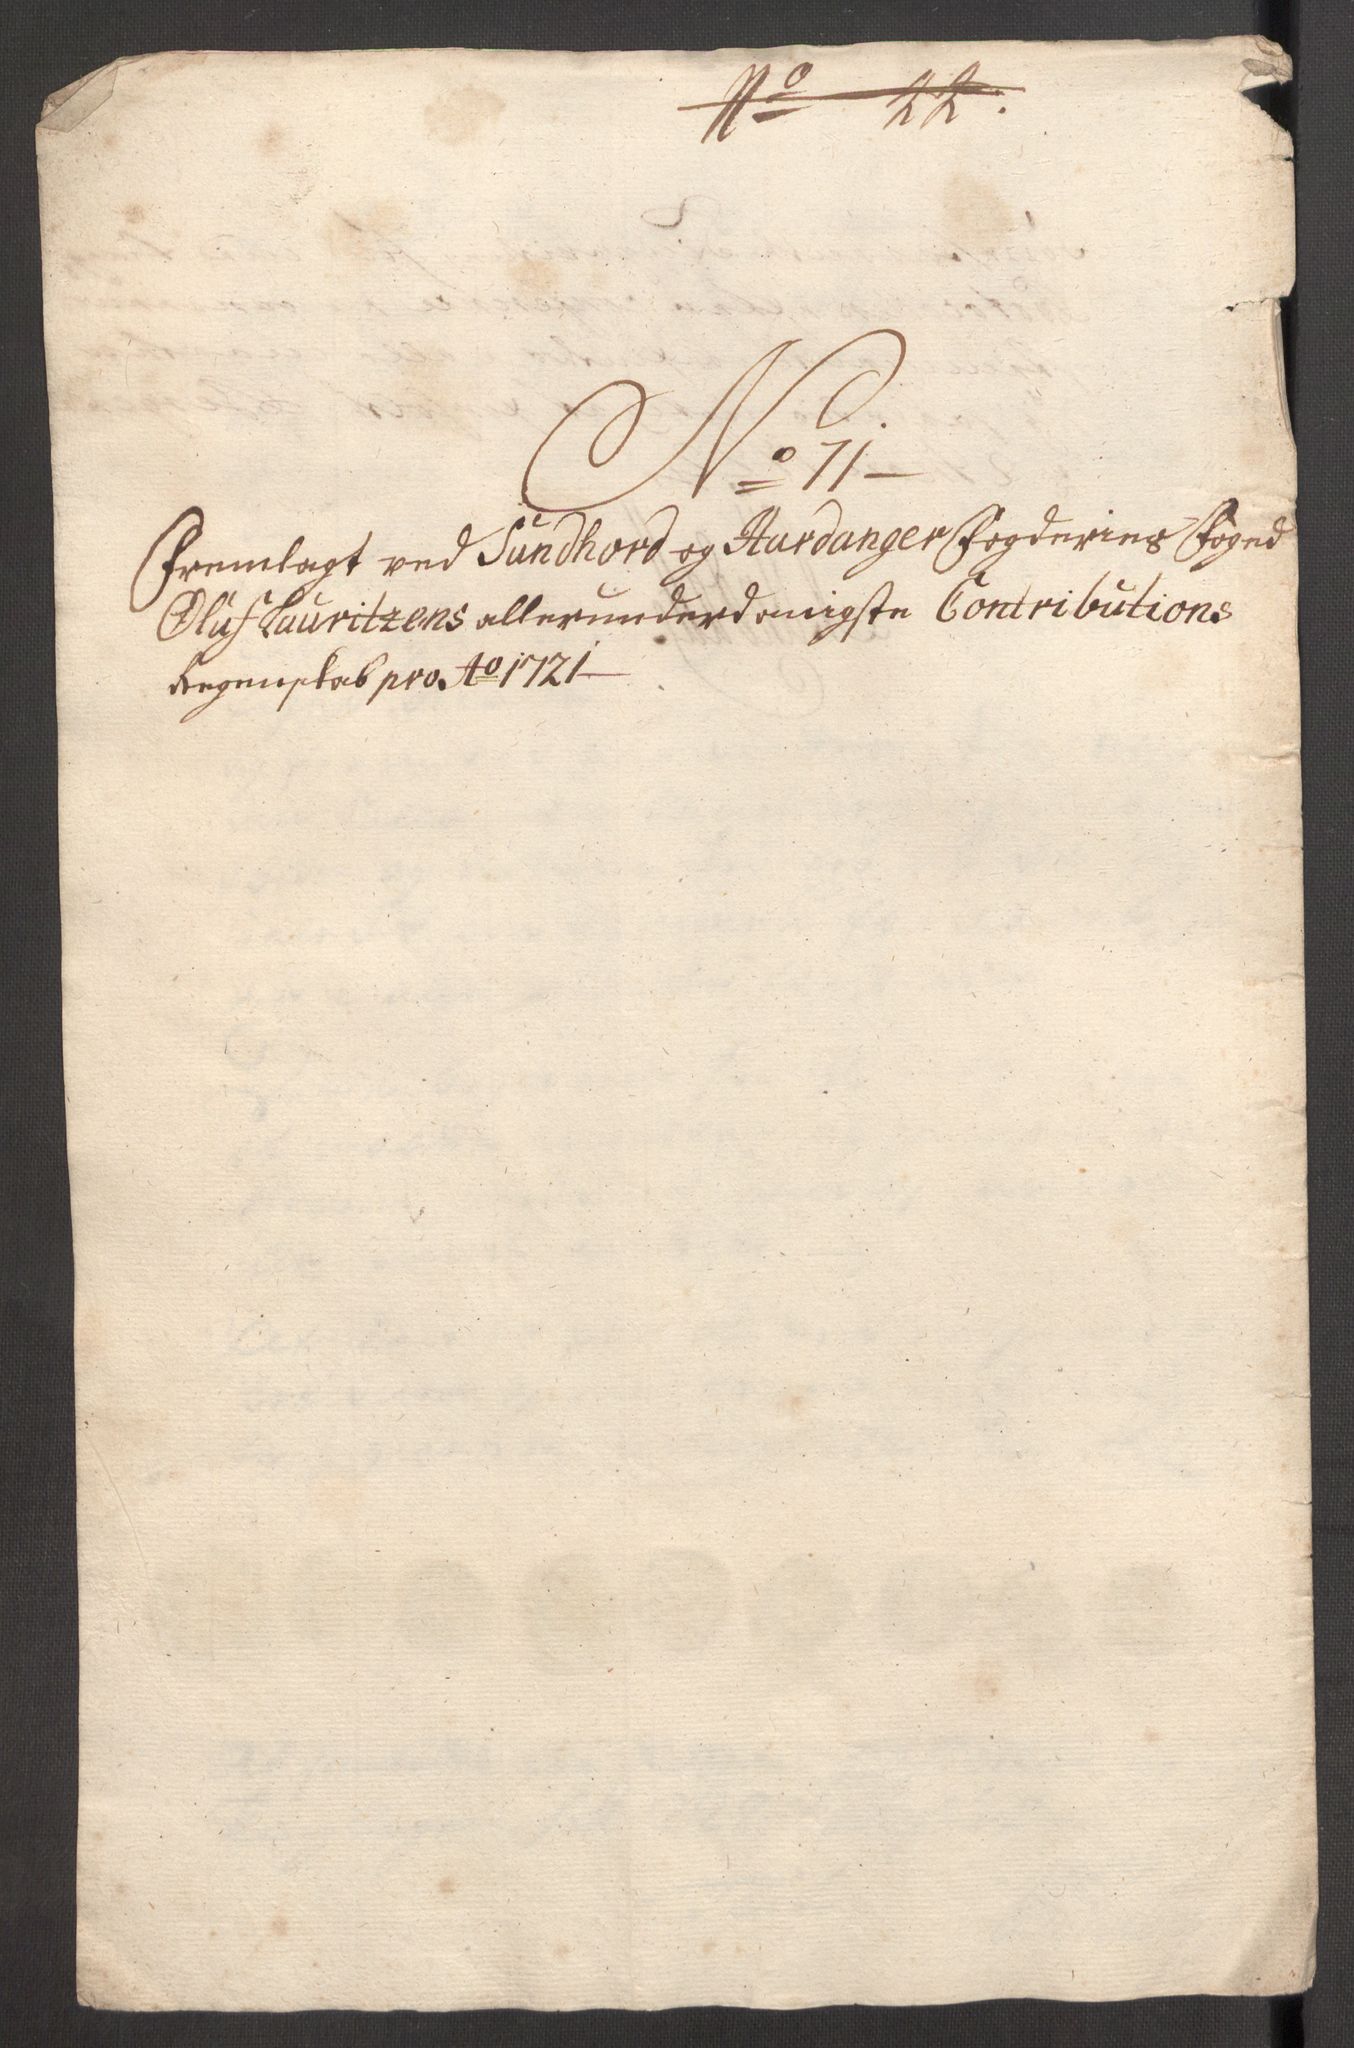 No 22.
No 71
Fremlagt ved Sundhord og Hardanger Fogderies Foged
Oluf Lauritzens allerunderdanigste Contributions
Regenskab pro. Ao 1721